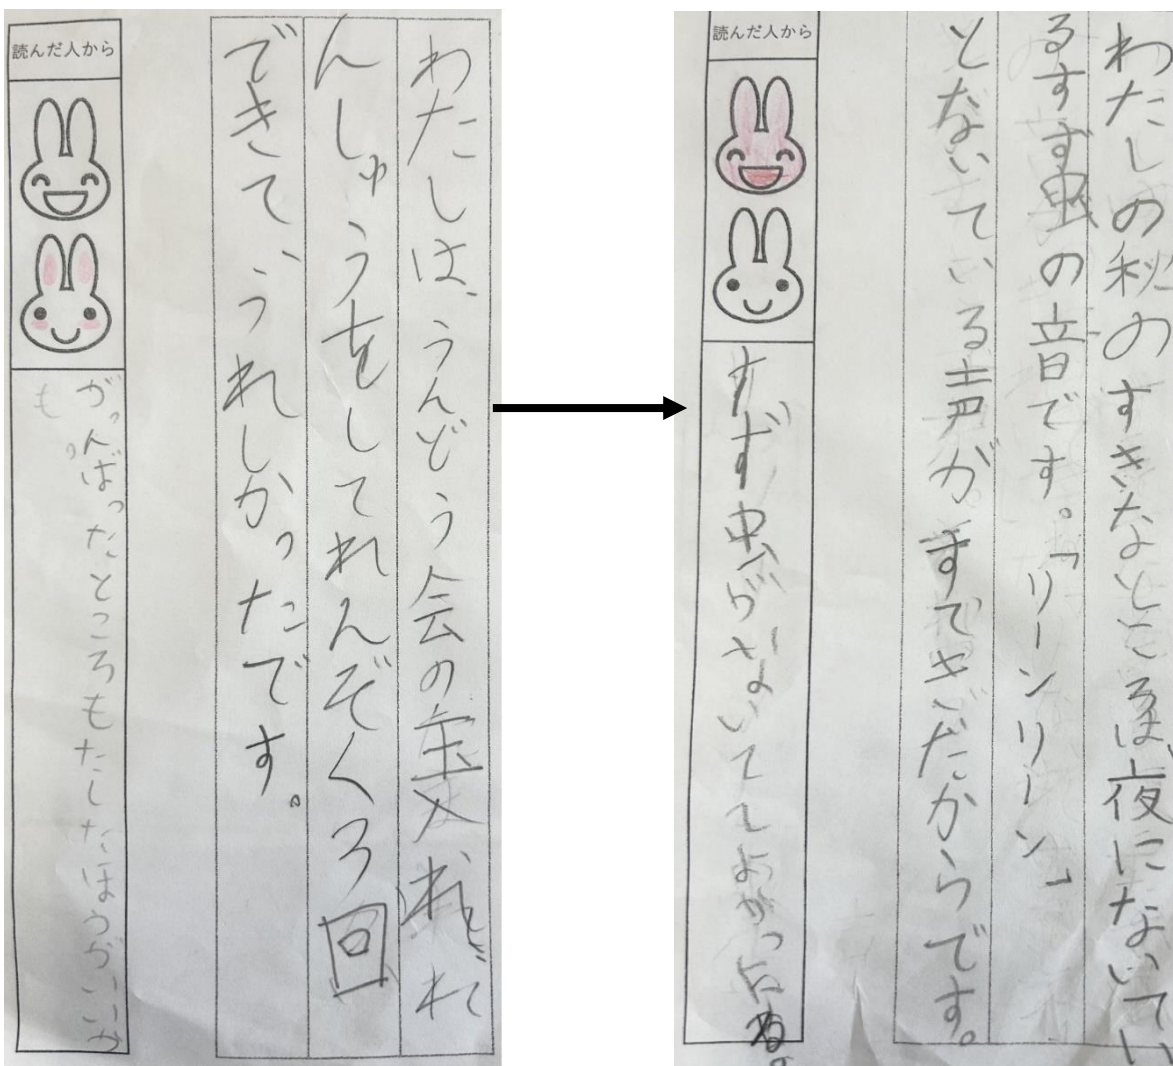 わたしは、うんどう会の宝入れどれ
んしゅうをしてれんぞく3回
できて、うれしかったです。
読んだ人から
がんばったところもたしたほうがいいか
も。
わたしの秋のすきなところは夜にないてい
るすず虫の音です。「リーンリーン」
とないている声がすてきだからです。
読んだ人から
すず虫がないててよかったね。